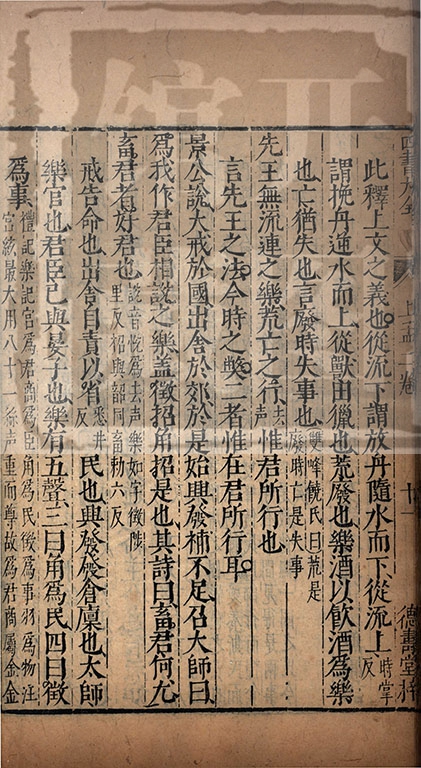 四書大全 上孟二卷 十一 德壽堂梓
此釋上文之義也從流下謂放舟隨水而下從流上時掌反
謂挽舟逆水而上從獸田獵也荒廢也樂酒以飲酒爲樂
也亡猶失也言廢時失事也雙峰饒氏曰荒是廢時亡是失事
先王無流連之樂荒亡之行去聲惟君所行也
言先王之法今時之弊二者惟在君所行耳
景公說大戒於國出舍於郊於是始興發補不足召大師曰
爲我作君臣相說之樂蓋徵招角招是也其詩曰畜君何尤
畜君者好君也說音悅爲去聲樂如字徵陟里反招與韶同畜勑六反
戒告命也出舍自責以省悉井反民也興發發倉廩也太師
樂官也君臣己與晏子也樂有五聲三曰角爲民四曰徵
爲事禮記樂記宮爲君商爲臣角爲民徵爲事羽爲物注宮絃最大用八十一絲聲重而尊故爲君商屬金金